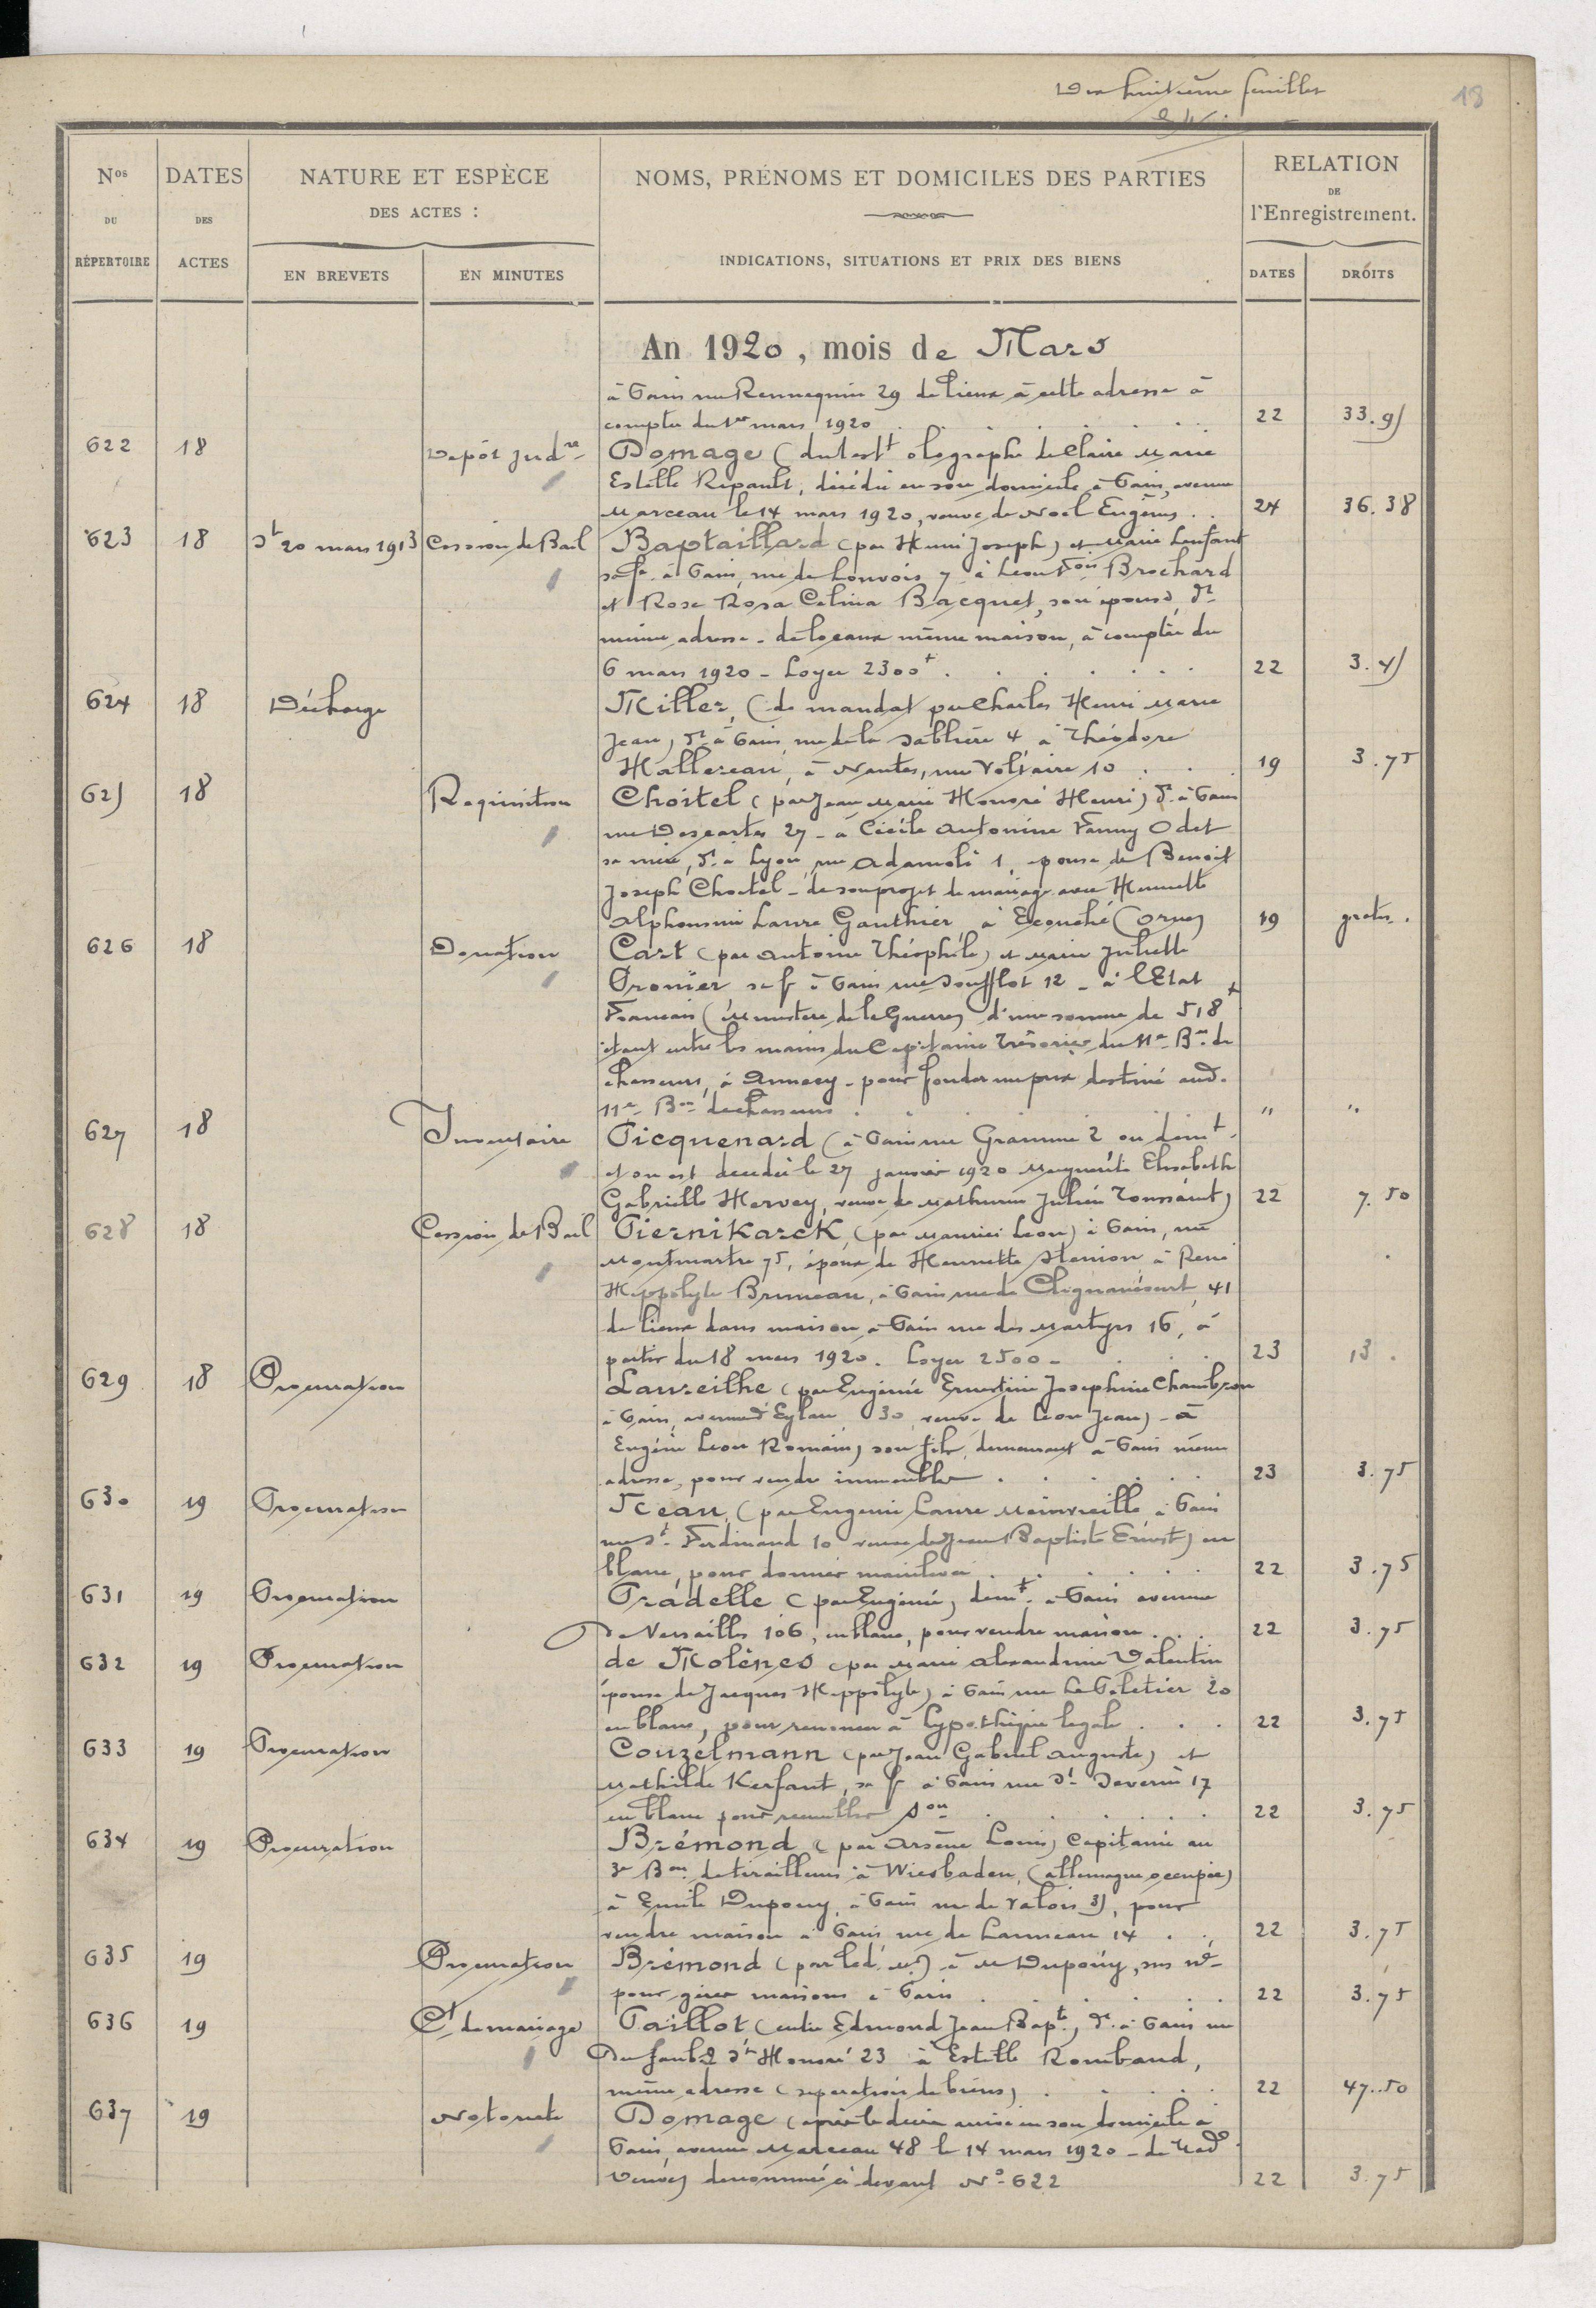 Dix huitième feuillet
18
Nos DU RÉPERTOIRE
DATES DES ACTES
NATURE ET ESPÈCE DES ACTES :
EN BREVETS
EN MINUTES
NOMS, PRÉNOMS ET DOMICILES DES PARTIES
INDICATIONS, SITUATIONS ET PRIX DES BIENS
RELATION DE l'Enregistrement.
DATES
DROITS
An 1920, mois de Mars
à Paris rue Rennequin 29 de lieux à cette adresse à
compter du 1er mars 1920 22 33.95
622 18 Dépôt judre Domage (du testt olographe de Claire Marie
Estelle Ripault, décédée en son domicile à Paris, avenue
Marceau le 14 mars 1920, veuve de Noel Eugène) 24 36.38
623 18 St 20 mars 1913 Cession de Bail Baptaillard (par Henri Joseph) et Marie Lenfant
sa fe à Paris, rue de Louvois 7 à Léon Fois Brochard
et Rose Rosa Celina Bacquet, son épouse dt
même adresse - de locaux même maison, à compter du
6 mars 1920 - Loyer 2300f 22 3.45
624 18 Décharge Miller, (de mandat par Charles Henri Marie
Jean) dt à Paris, rue de la Sablière 4, à Théodore
Hallereau, à Nantes, rue Voltaire 10 19 3.75
625 18 Réquisition Choitel (par Jean Marie Honoré Henri) dt à Paris
rue Descartes 27 - à Cécile Antonine Fanny Odet
sa mère, dt à Lyon, rue Adamoli 1, épouse de Benoit
Joseph Choitel - de son projet de mariage avec Henriette
Alphonsine Laure Gauthier, à Ecouché (Orne) 19 gratis.
626 18 Donation Cart (par Antoine Théophile) et Marie Juliette
Pronier sa f à Paris rue Soufflot 12 - à l'Etat
Français (Ministère de la Guerre) d'une somme de 518f
étant entre les mains du Capitaine Trésorier du 11e Bon de
chasseurs, à Annecy - pour fonder un prix destiné aud.
11e Bon de chasseurs " "
627 18 Inventaire Picquenard (à Paris rue Gramme 2 où demt
et où est décédée le 27 janvier 1920 Marguerite Elisabeth
Gabrielle Hervey, veuve de Mathurin Julien Toussaint) 22 7.50
628 18 Cession de Bail Piernikarck, (par Maurice Leon) à Paris, rue
Montmartre 75, époux de Henriette à René
Hippolyte Bruneau, à Paris rue de Clignancourt, 41
de lieux dans maison à Paris rue des Martyrs 16, à
partir du 18 mars 1920. Loyer 2500 - 23 13.
629 18 Procuration Lavreilhe (par Eugénie Ernestine Josephine Chambron
à Paris, avenue d'Eylau 30, veuve de Léon Jean) - à
Eugène Leon Romain, son fils, demeurant à Paris même
adresse, pour vendre immeubles 23 3.75
630 19 Procuration Jean, (par Eugenie Laure Mainvieille à Paris
rue St Ferdinand 10 veuve de Jean Baptiste Ernest) en
blanc, pour donner mainlevée 22 3.75
631 19 Procuration Pradelle (par Eugénie) demt à Paris avenue
de Versailles 106, en blanc, pour vendre maison 22 3.75
632 19 Procuration de Molènes (par Marie Alexandrine Valentin
épouse de Jacques Hippolyte) à Paris rue Le Peletier 20
en blanc, pour renoncer à hypothèque légale 22 3.75
633 19 Procuration Couzelmann (par Jean Gabriel Auguste) et
Mathilde Kerfant, sa f à Paris rue St Severin 17
en blanc pour recueillir son 22 3.75
634 19 Procuration Brémond (par Arsène Louis) Capitaine au
3e Bon de tirailleurs à Wiesbaden, (Allemagne occupée)
à Emile Dupouy, à Paris rue de Valois 35, pour
vendre maison à Paris rue de Lanneau 14 22 3.75
635 19 Procuration Brémond (par led. M.) à M Dupouy, sus né
pour gérer maisons à Paris 22 3.75
636 19 Ct de mariage Paillot (entre Edmond Jean Bapte) dt à Paris rue
Du faubg St Honoré 23 à Estelle Rombaud,
même adresse (séparation de biens) 22 47.50
637 19 Notoriété Domage (après le décès arrivé en son domicile à
Paris, avenue Marceau 48 le 14 mars 1920 - de Made
Veuve) dénommée ci devant No 622 22 3.75